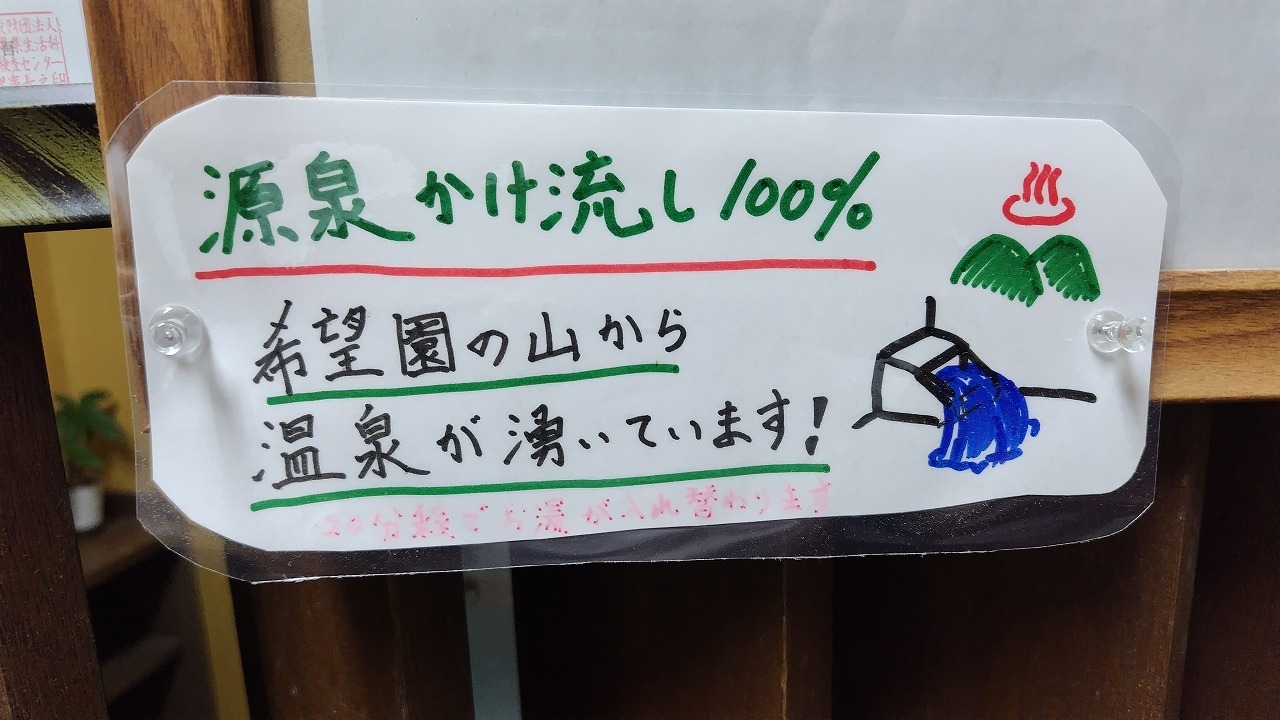 源泉かけ流し100%
希望園の山から
温泉が湧いています!
20分程でお湯が入れ替わります